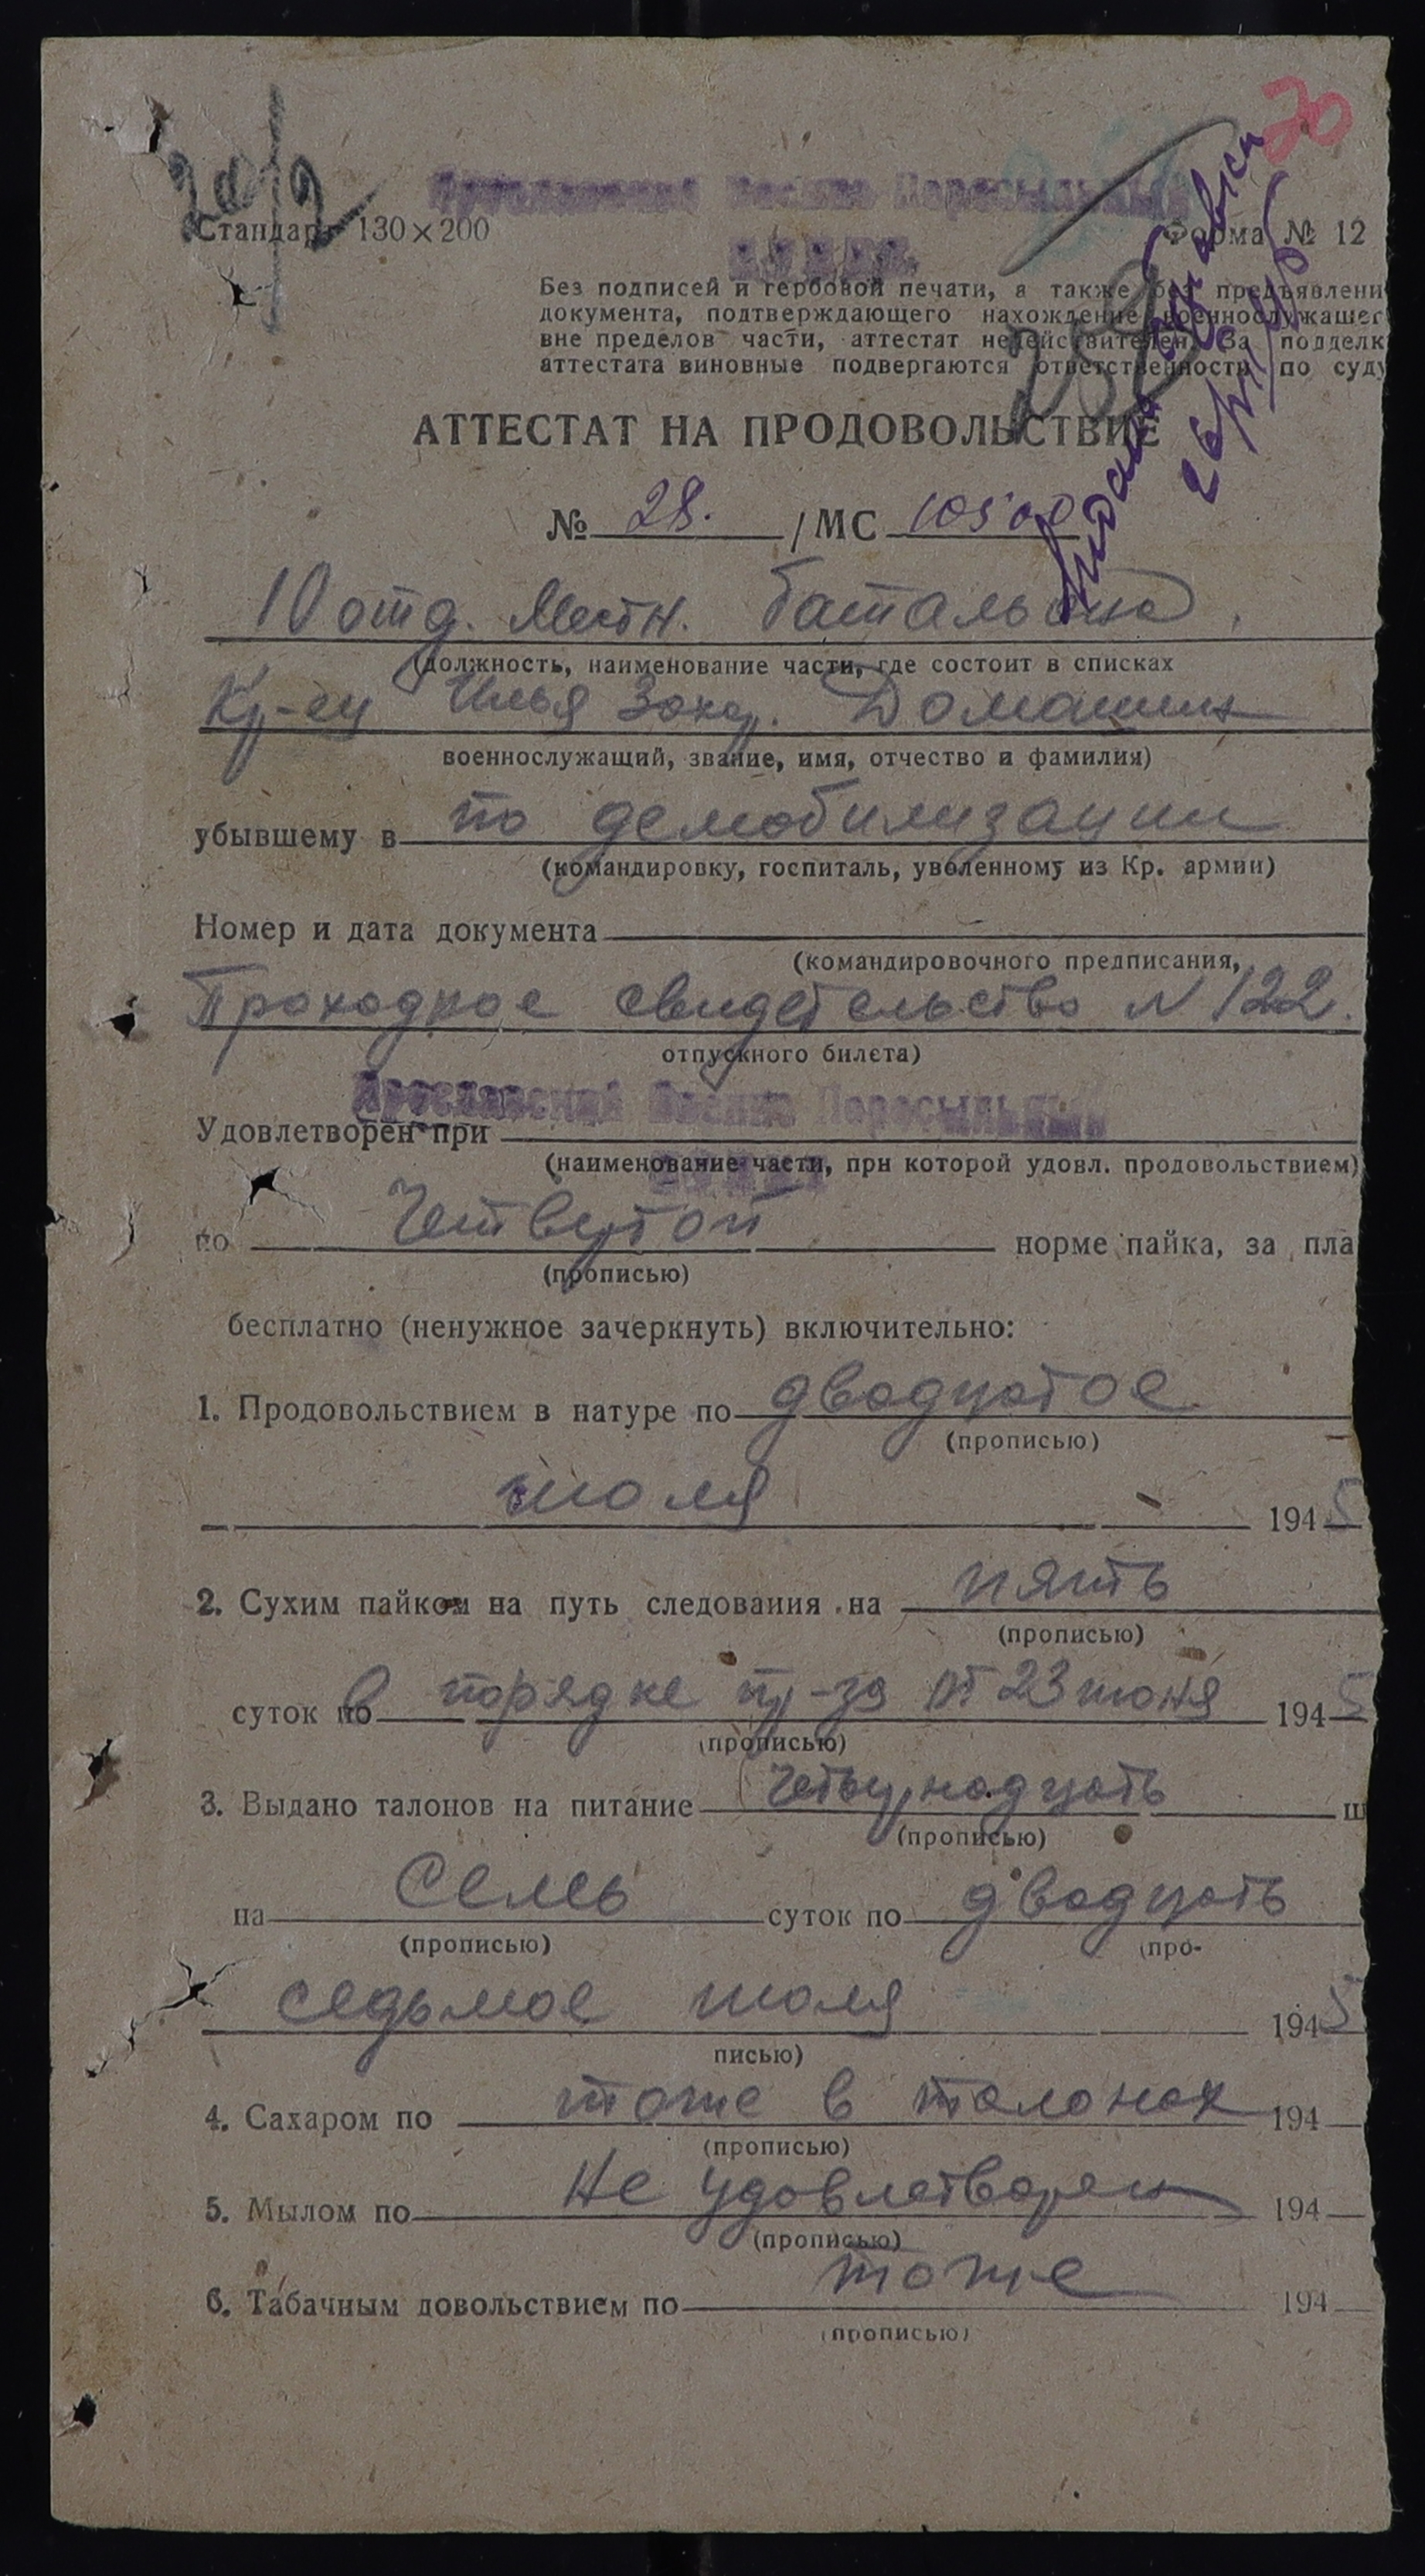 20
Ярославский Военно Пересыльный
Пункт
Стандарт 130×200
Форма № 12
Без подписей и гербовой печати, а также без предъявлени
документа, подтверждающего нахождение военнослужащег
вне пределов части, аттестат недействителен. За подделк
аттестата виновные подвергаются ответственности по суду
АТТЕСТАТ НА ПРОДОВОЛЬСТВИЕ
№ 28. /МС 10500
10 отд. Местн. батальона
(должность, наименование части, где состоит в списках
Кр-ец Илья Захар. Домашин
военнослужащий, звание, имя, отчество и фамилия)
убывшему в по демобилизации
(командировку, госпиталь, уволенному из Кр. армии)
Номер и дата документа
(командировочного предписания,
Проходное свидетельство N 122.
отпускного билета)
Ярославский Военно Пересыльный
Удовлетворен при
(наименование части, при которой удовл. продовольствием)
Пункт
по Четвертой норме пайка, за пла
(прописью)
бесплатно (ненужное зачеркнуть) включительно:
1. Продовольствием в натуре по двадцатое
(прописью)
июля 1945
2. Сухим пайком на путь следования на пять
(прописью)
суток по в порядке пр-за от 23 июня 1945
(прописью)
3. Выдано талонов на питание Четырнадцать ш
(прописью)
на Семь суток по двадцать
(прописью) (про-
седьмое июля 1945
писью)
4. Сахаром по тоже в талонах 194
(прописью)
5. Мылом по Не удовлетворен 194
(прописью)
6. Табачным довольствием по тоже 194
(прописью)